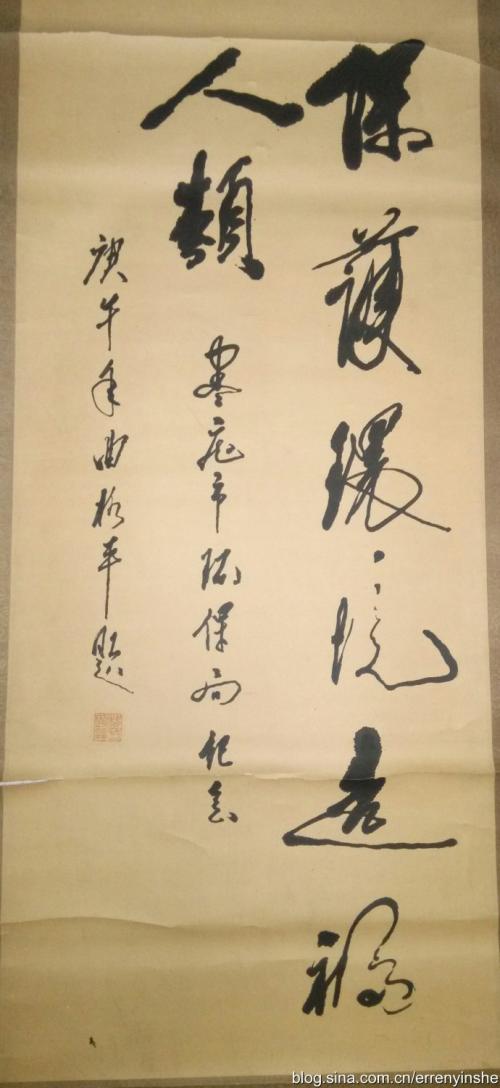 保護環境造福
人類
枣庄市环保局纪念
庚午年曲格平题
blog.sina.com.cn/errenyinshe